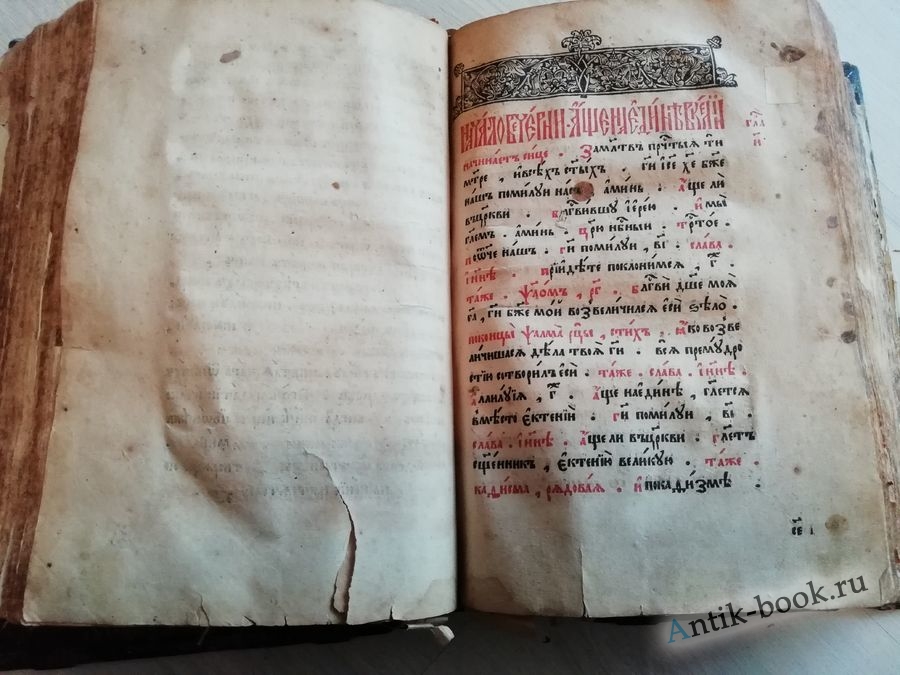 начало вечерни. а҆́ще на є҆ди́нѣ в̾ ке́лїи
гла҃
и҃
начина́етъ си́це . За мл҃твъ прч҃тыѧ ти
мт҃ре , и҆ всѣ́хъ ст҃ы́хъ . гд҇и і҆се хе бж҃е
на́шъ поми́луи на́съ . а҆ми́нь . а҆́ще ли
въ цр҃кви . бл҃гви́вшу і҆ере́ю . и҆ мы̀
гл҃емъ . а҆ми́нь . цр҃ю нб҇ныи . трт҃о́е .
и҆ ѻ҆́ч҃е на́шъ . гд҇и поми́луи , в҃і . сла́ва .
и҆ ны́нѣ . прїиди́те поклони́мсѧ , г҃ .
та́же . ѱало́мъ , р҃г . бл҃гвѝ дш҃е моѧ̀
гд҇а , гд҇и бж҃е мо́й возвели́чилсѧ є҆сѝ ѕѣло̀ .
по концы̀ ѱалма̀ рцы̀ , сти́хъ , ꙗ҆́ко возве
ли́чишасѧ дѣла̀ твоѧ̀ гд҇и . всѧ̀ прему́дро
стїю сотвори́лъ є҆сѝ . та́же . сла́ва . и҆ ны́нѣ .
а҆ллилу́їѧ , г҃ . а҆́ще на є҆ди́нѣ , гл҃етсѧ
вмѣ́сто є҆ктенїѝ . гд҇и поми́луи , в҃і .
сла́ва . и҆ ны́нѣ . а҆́ще ли въ цр҃кви . гл҃етъ
сщ҃е́нникъ , є҆ктенїю̀ вели́кую . та́же .
каѳи́сма , рѧдова́ѧ . и҆ по каѳи́змѣ .
Antik-book.ru